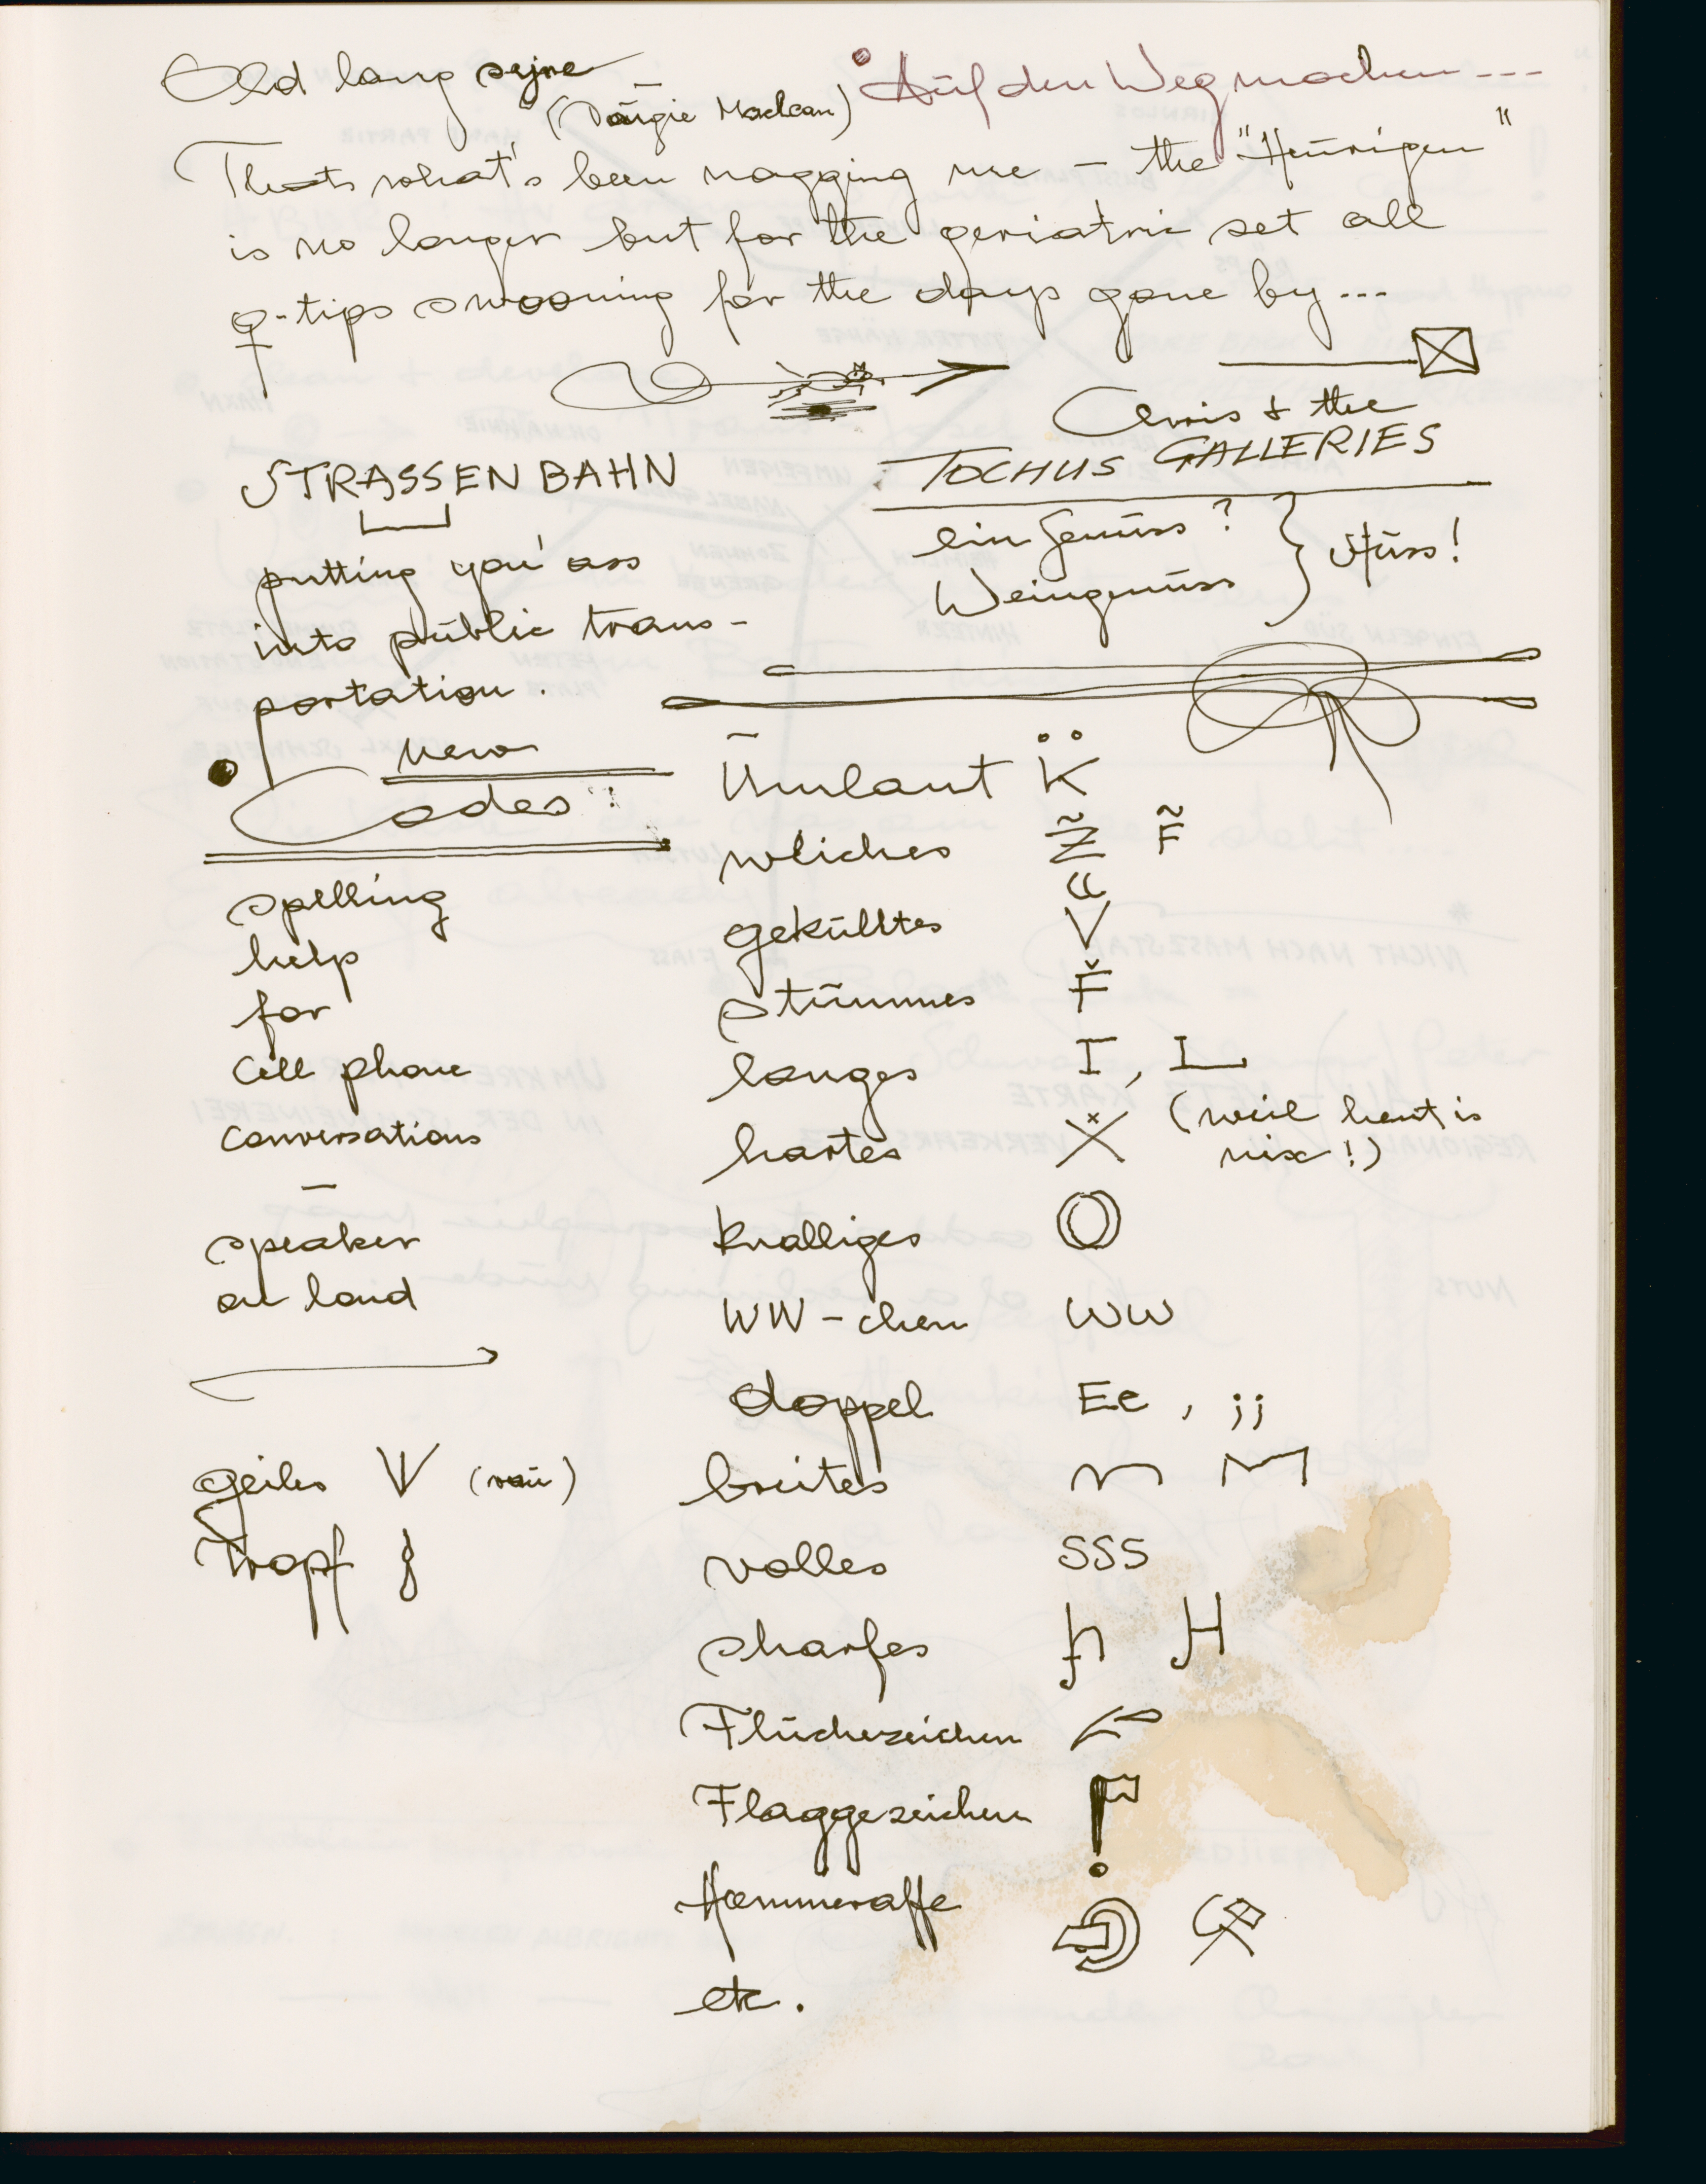 Old lang sejne
(Dougie Maclean)
Auf den Weg machen ---
Thats what's been nagging me – the "Heurigen"
is no longer but for the geriatric set all
q-tips swooning for the days gone by...
& the
TOCHUS GALLERIES
ein Genuss ?
Weingenuss
STRASSENBAHN
putting you' ass
into public trans-
portation.
new
Codes:
spelling
help
for
Cell phone
conversations
–
speaker
on loud
geiles V (vau)
Tropf
Umlaut K̈
wliches Z̃ F̃
gekülltes V
stummes F̌
langes I, L
hartes X (weil heut is
nix!)
knalliges O
WW-chen WW
doppel Ee, ;;
breites n M
volles SSS
sharfes h H
Flüchezeichen
Flaggezeichen
Hammeraffe
etc.